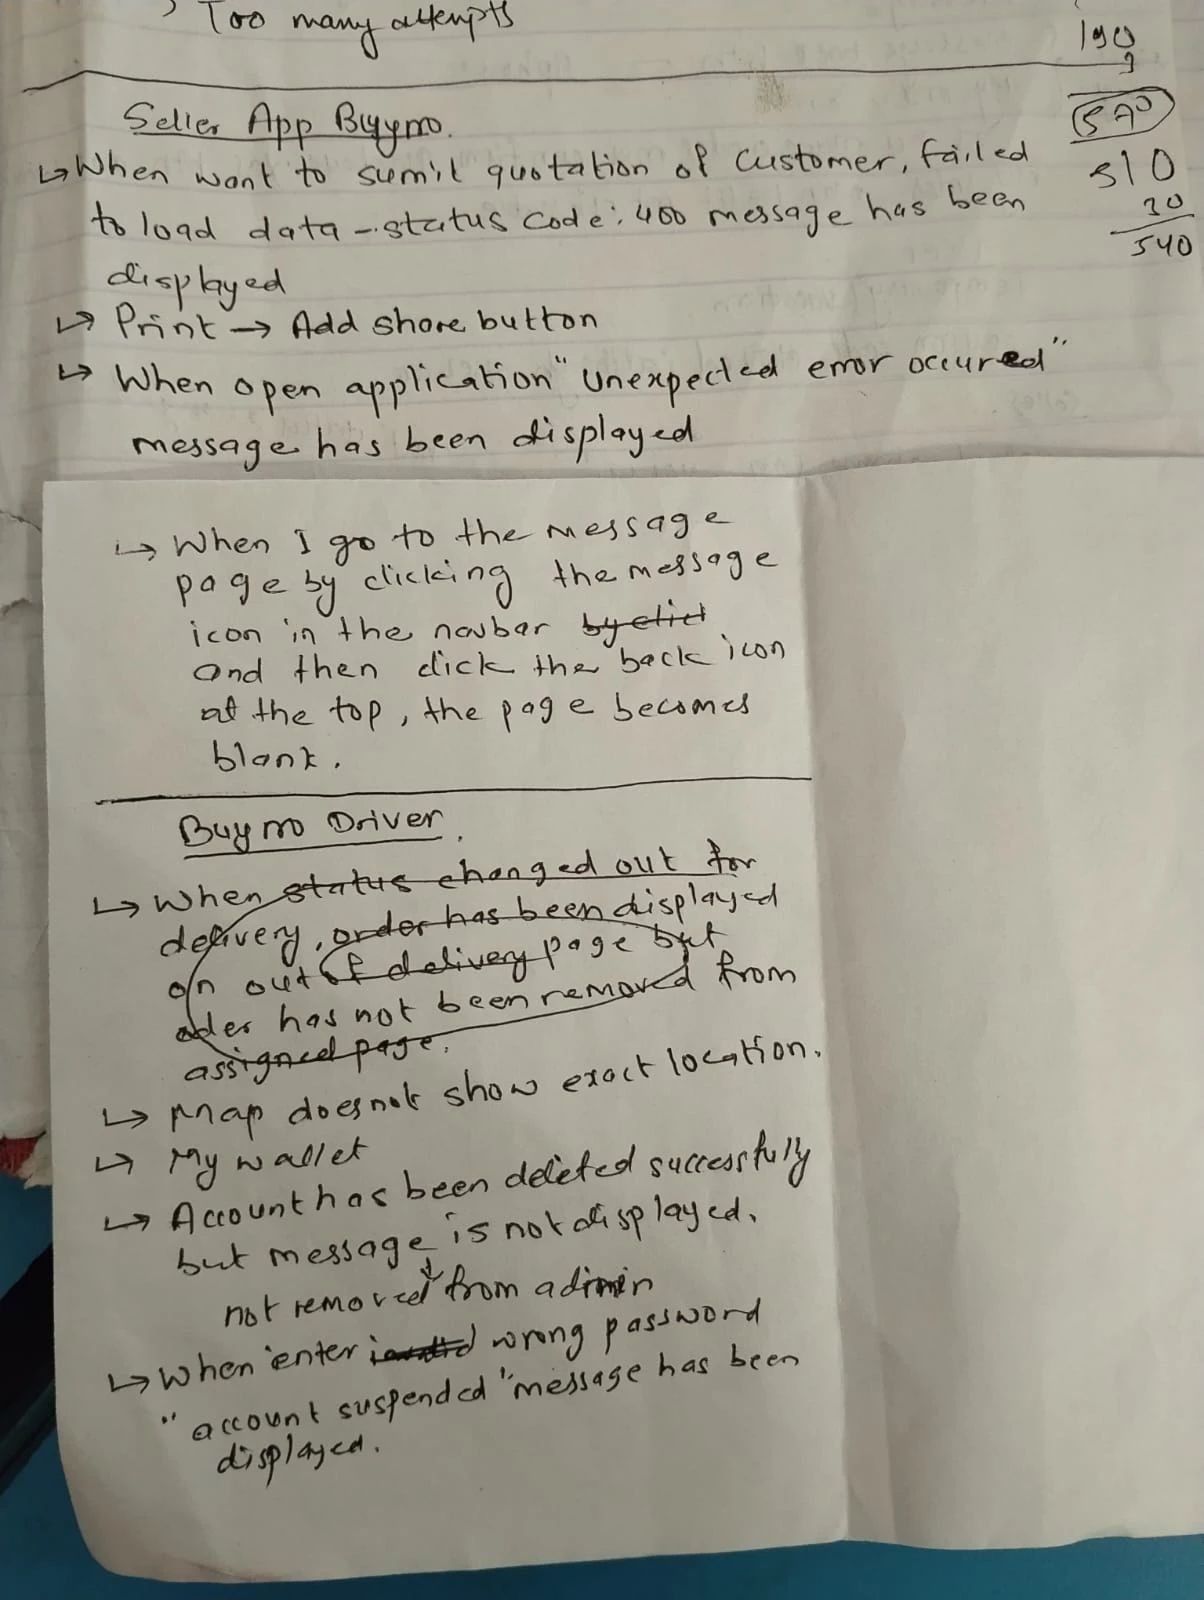 Too many attempts
190
3
570
Seller App Buymo.
↳ When want to sumit quotation of Customer, failed
to load data - status code: 400 message has been
displayed
510
30
540
↳ Print → Add share button
↳ When open application "Unexpected error occured"
message has been displayed
↳ When I go to the message
page by clicking the message
icon in the navbar by click
and then click the back icon
at the top, the page becomes
blank.
Buymo Driver.
↳ When status changed out for
delivery, order has been displayed
on out of delivery page but
oder has not been removed from
assigned page.
↳ Map does not show exact location.
↳ My wallet
↳ Account has been deleted successfully
but message is not displayed.
↓
not removed from admin
↳ When enter invalid wrong password
"account suspended" message has been
displayed.